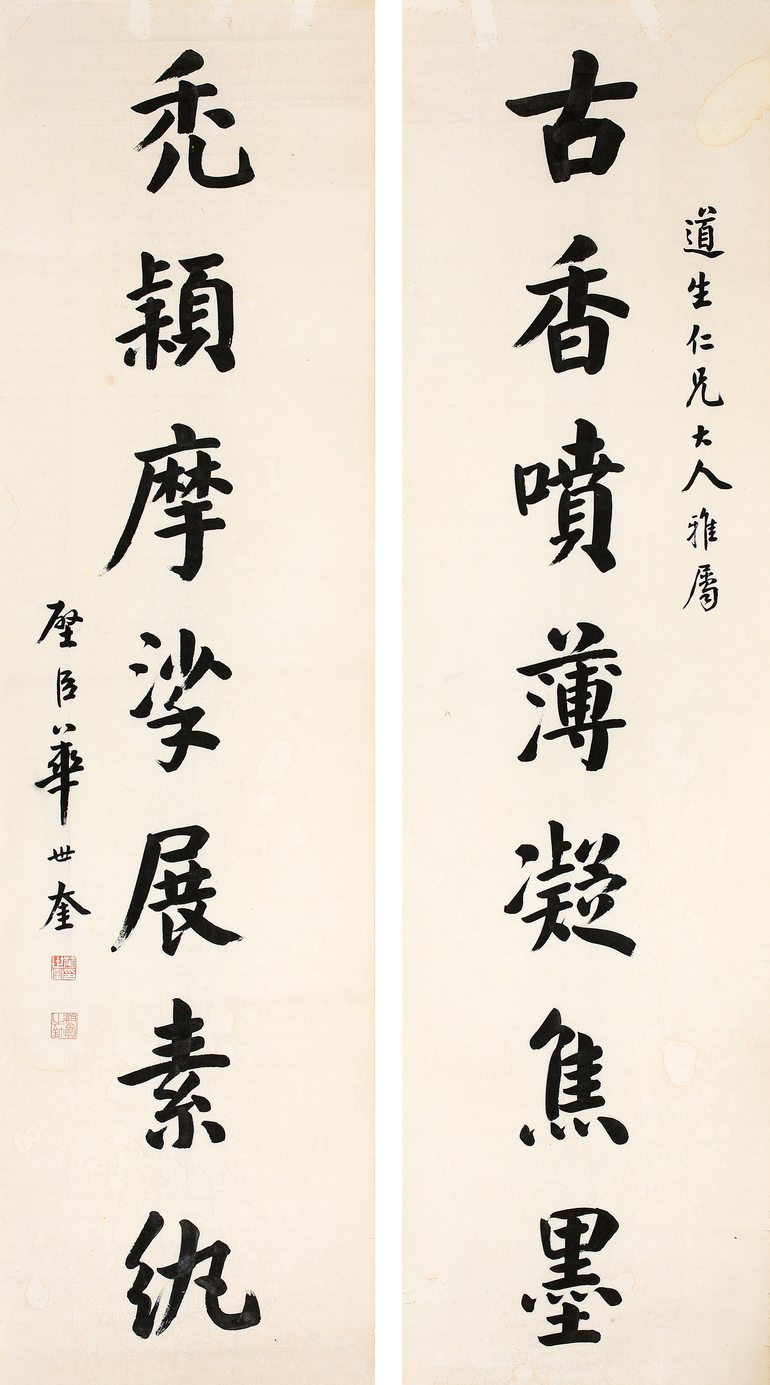 道生仁兄大人雅屬
古香噴薄凝焦墨
禿穎摩挲展素紈
壁臣華世奎